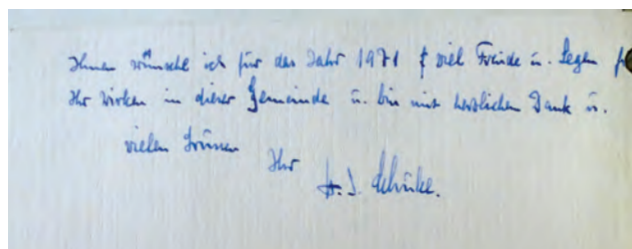 Ihnen wünsche ich für das Jahr 1971 viel Freude u. Segen f
Ihr Wirken in dieser Gemeinde u. bin mit herzlichem Dank u.
vielen Grüssen
Ihr H. J.